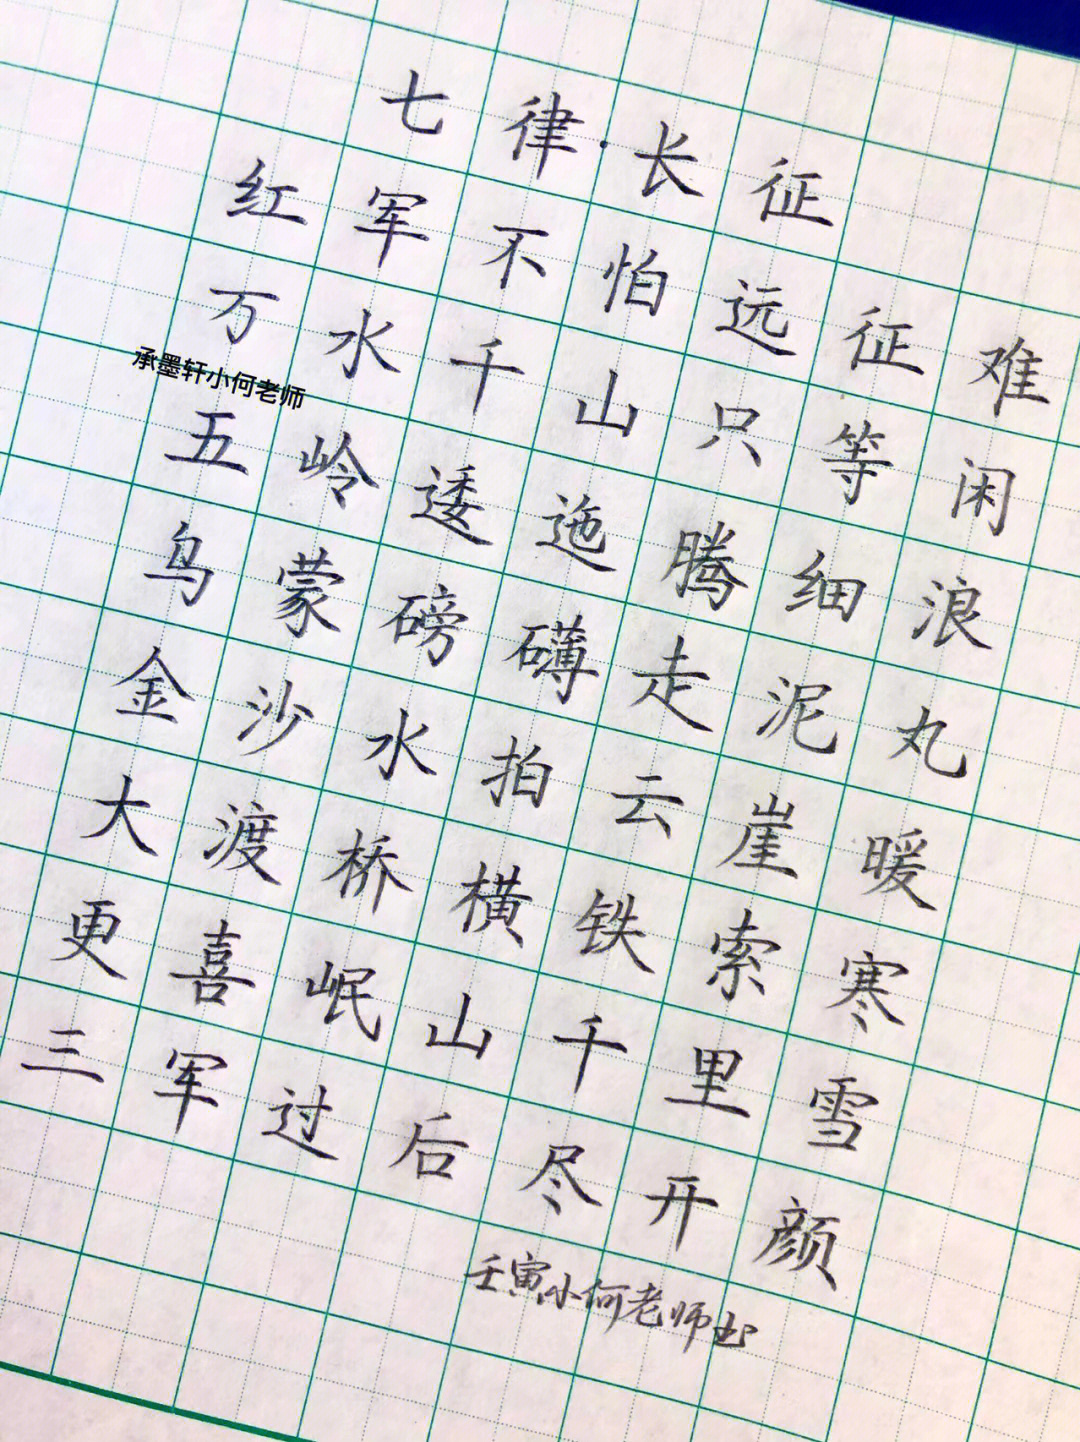 七律·长征
红军不怕远征难
万水千山只等闲
承墨轩小何老师
五岭逶迤腾细浪
乌蒙磅礴走泥丸
金沙水拍云崖暖
大渡桥横铁索寒
更喜岷山千里雪
三军过后尽开颜
壬寅小何老师书